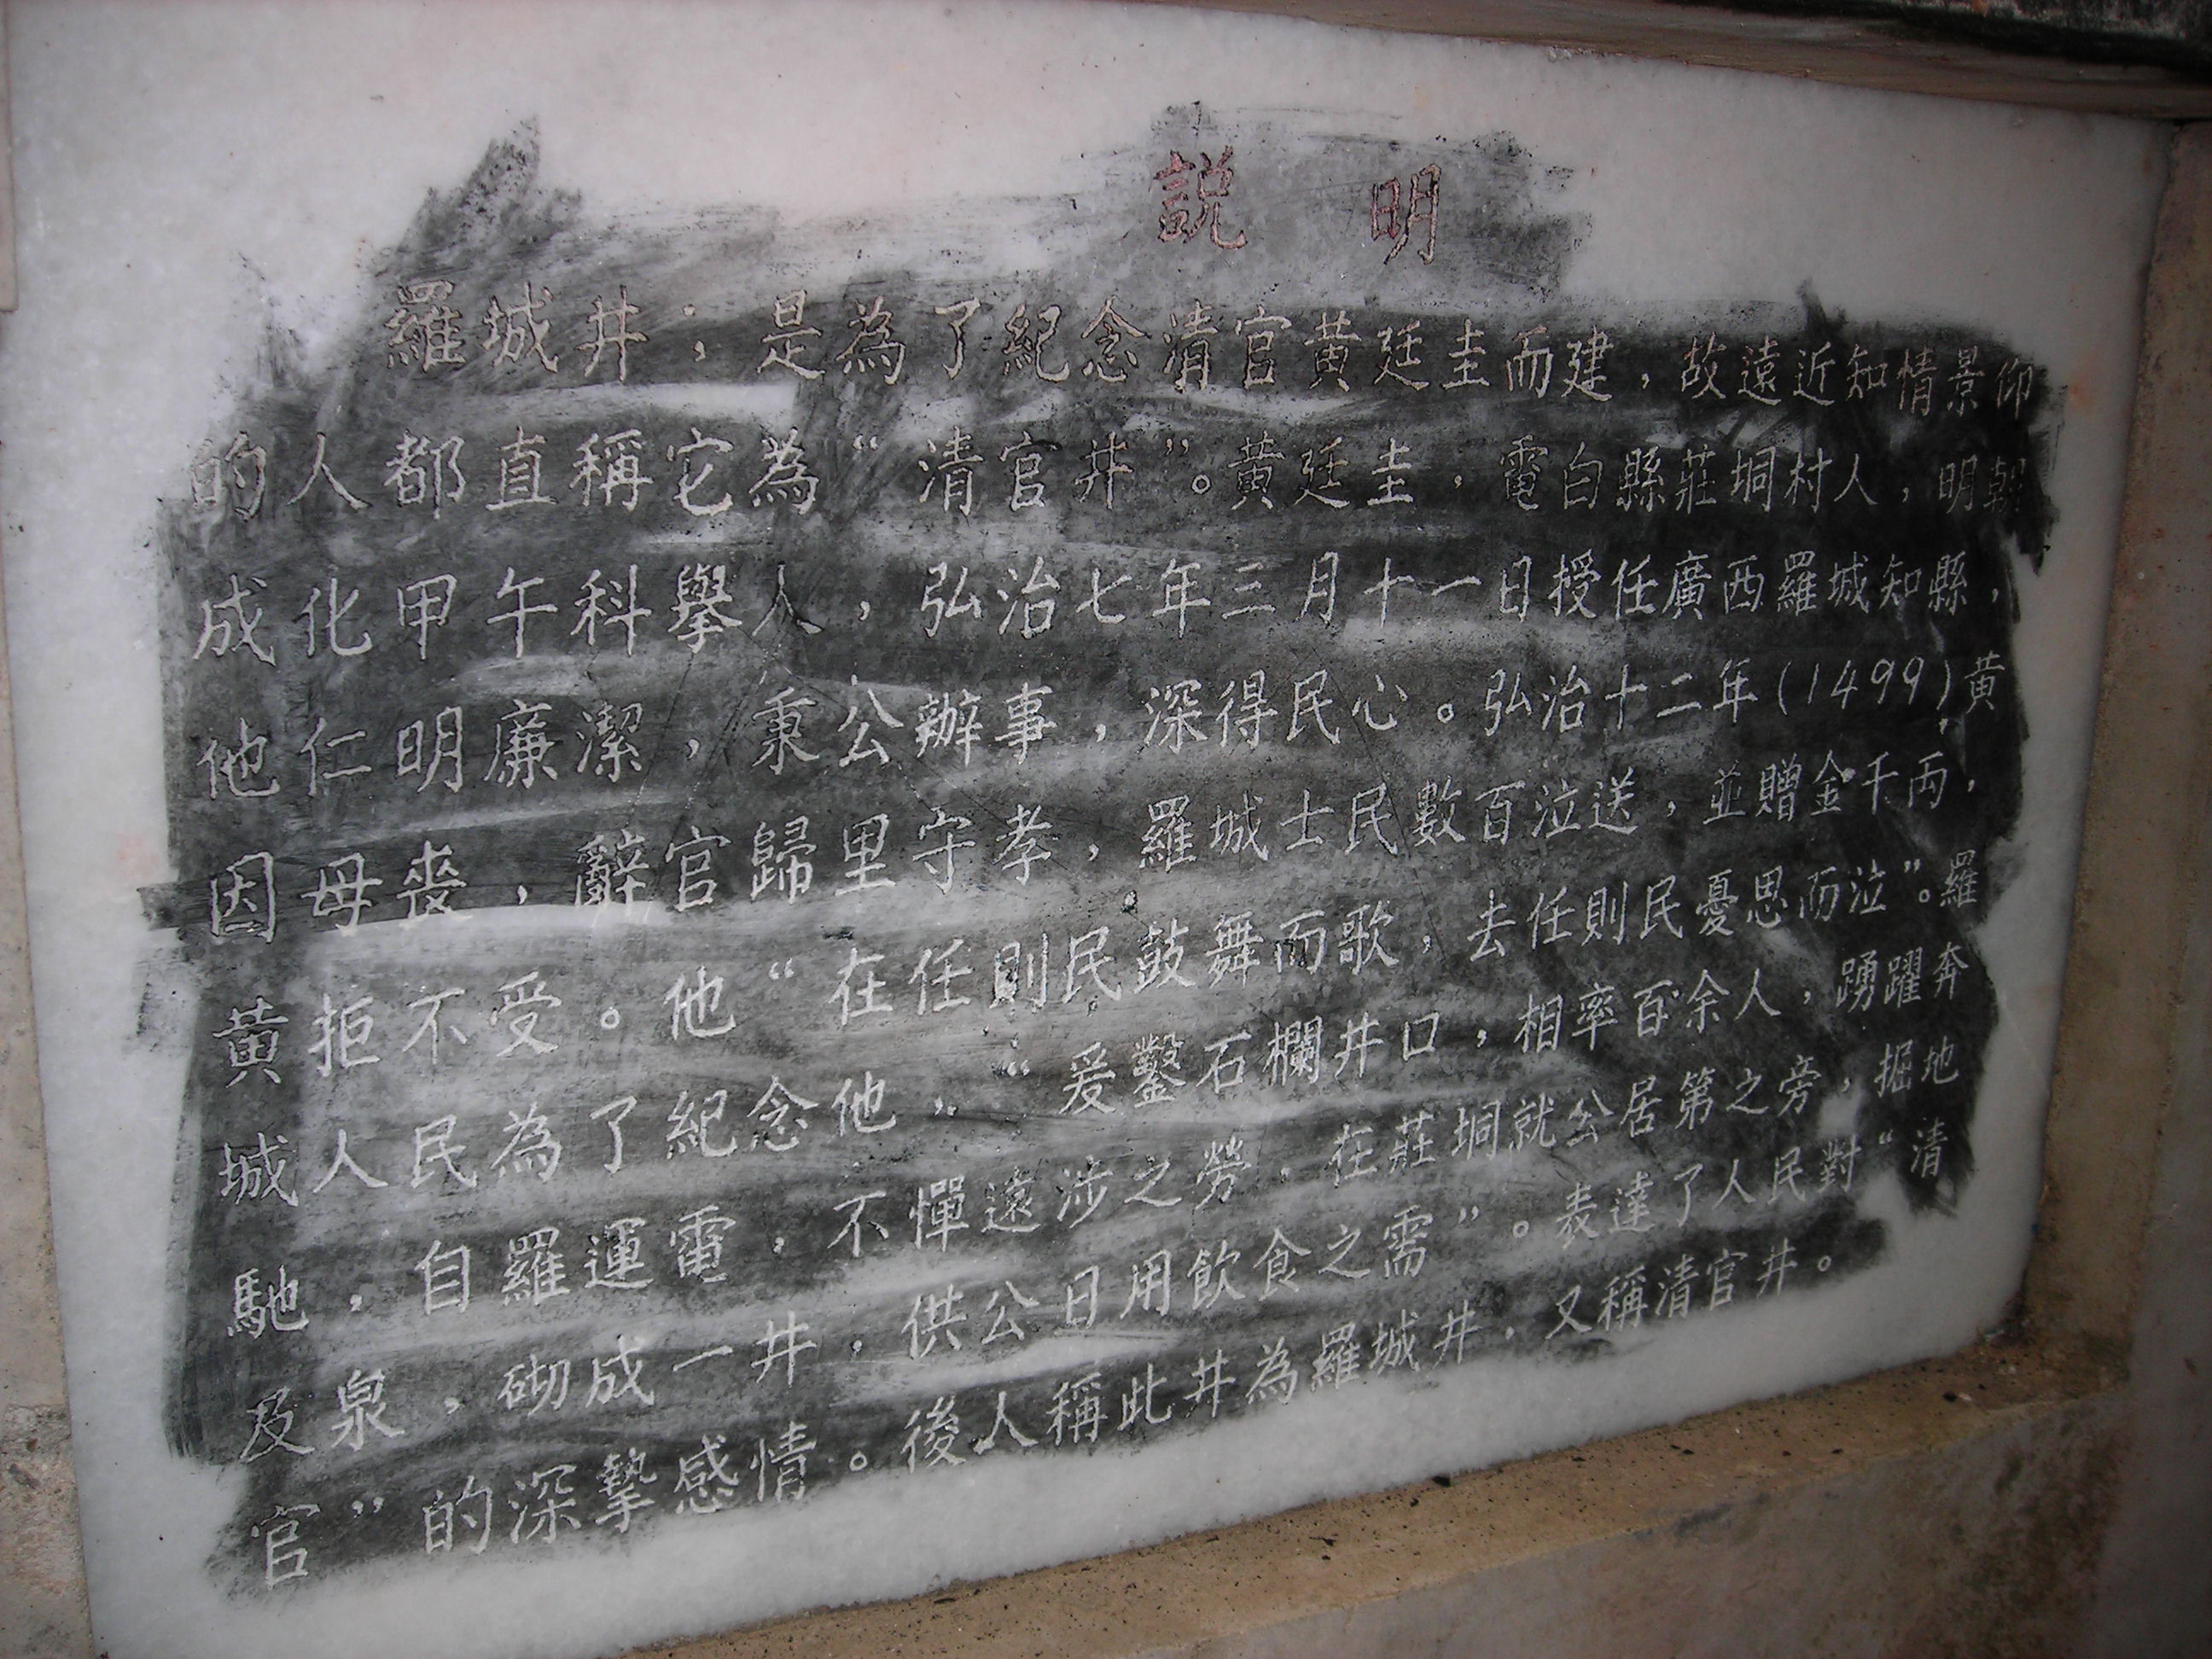 説 明
羅城井；是為了紀念清官黃廷圭而建，故遠近知情景仰
的人都直稱它為“清官井”。黃廷圭，電白縣莊垌村人，明朝
成化甲午科舉人，弘治七年三月十一日授任廣西羅城知縣，
他仁明廉潔，秉公辦事，深得民心。弘治十二年(1499)黃
因母喪，辭官歸里守孝，羅城士民數百泣送，並贈金千両，
黃拒不受。他“在任則民鼓舞而歌，去任則民憂思而泣”。羅
城人民為了紀念他，“爰鑿石欄井口，相率百余人，踴躍奔
馳，自羅運電，不憚遠涉之勞，在莊垌就公居第之旁，掘地
及泉，砌成一井，供公日用飲食之需”。表達了人民對“清
官”的深摯感情。後人稱此井為羅城井，又稱清官井。